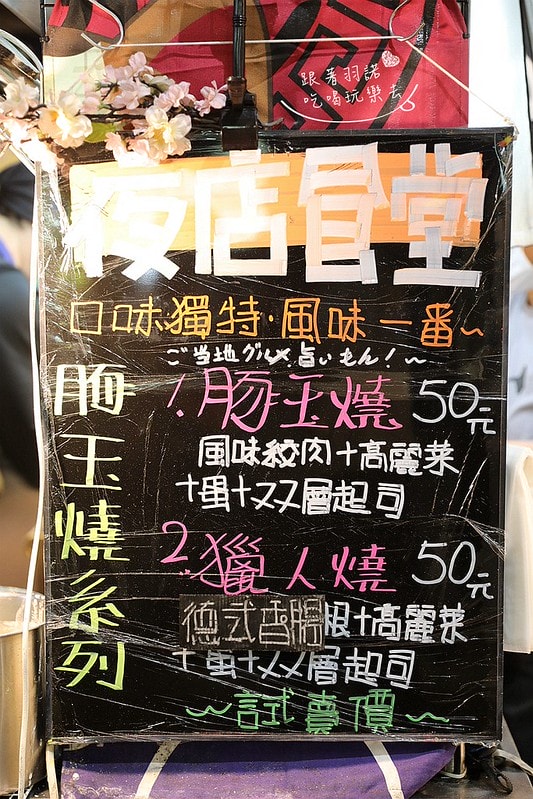 跟著羽諾
吃喝玩樂去
夜店食堂
口味獨特·風味一番~
ご当地グルメ旨いもん!~
豚玉燒系列
1.豚玉燒 50元
風味絞肉+高麗菜
+蛋+双層起司
2.獵人燒 50元
德式香腸 根+高麗菜
+蛋+双層起司
~試賣價~